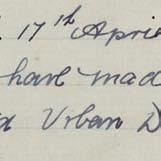 17th April
have mad
Urban D